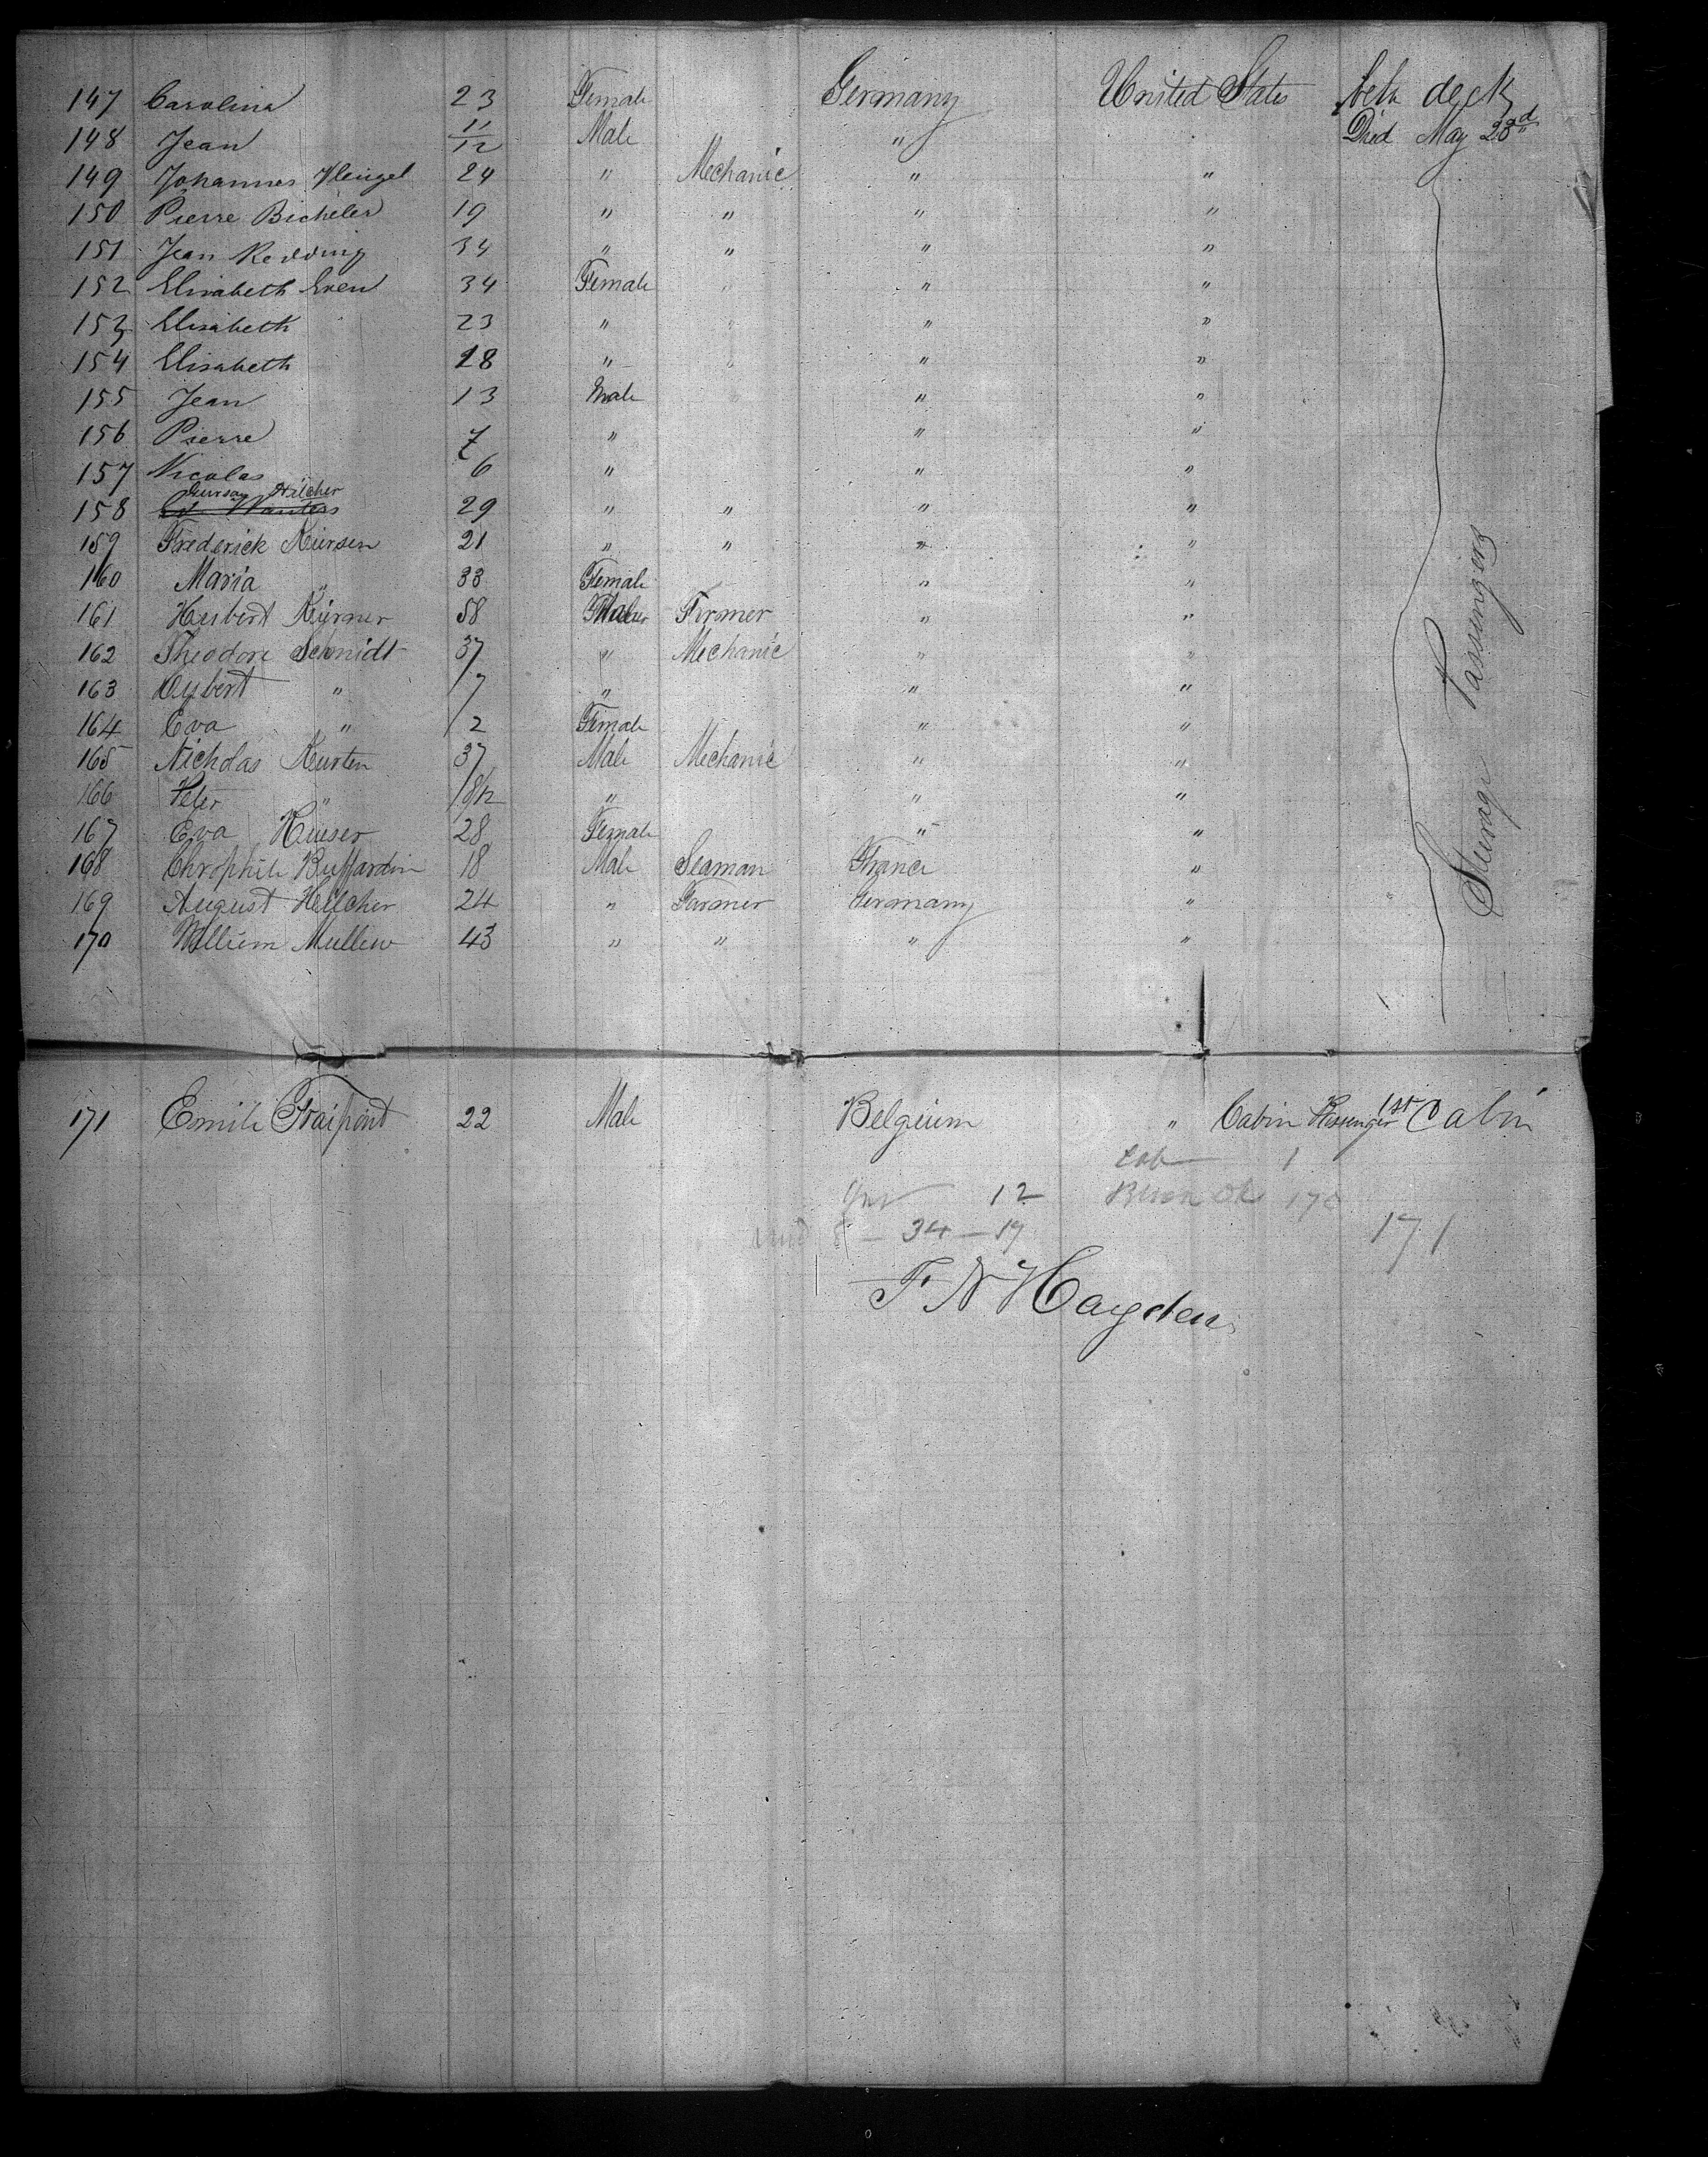 147 Carolina 23 Female Germany United States betn deck
148 Jean 11/12 Male " Died May 23rd
149 Johannes Hengel 24 " Mechanic " "
150 Pierre Bicheler 19 " " " "
151 Jean Redding 34 " " " "
152 Elisabeth Even 34 Female " " "
153 Elisabeth 23 " " " "
154 Elisabeth 28 " " " "
155 Jean 13 Male " "
156 Pierre 7 " " "
157 Nicolas 6 " " "
Hilcher
158 29 " " " "
159 Frederick Kürsen 21 " " " "
160 Maria " 33 Female " "
161 Hubert 58 Male Firmer " "
162 Theodore Schmidt 37 " Mechanic " "
163 " 7 " " "
164 Eva " 2 Female " "
165 Nicholas Kursten 37 Male Mechanic " "
166 Peter " " " "
167 Eva Kuiser 28 Female " "
168 Buffardin 18 Male Seaman France "
169 August Hilcher 24 " Farmer Germany "
170 Willium Mullen 43 " " " "
Steerage Passengers
171 Emile Fraipont 22 Male Belgium " Cabin Passenger 1st Cabin
Cab 1
12 170
8 — 34 — 19 171
F N Hayden